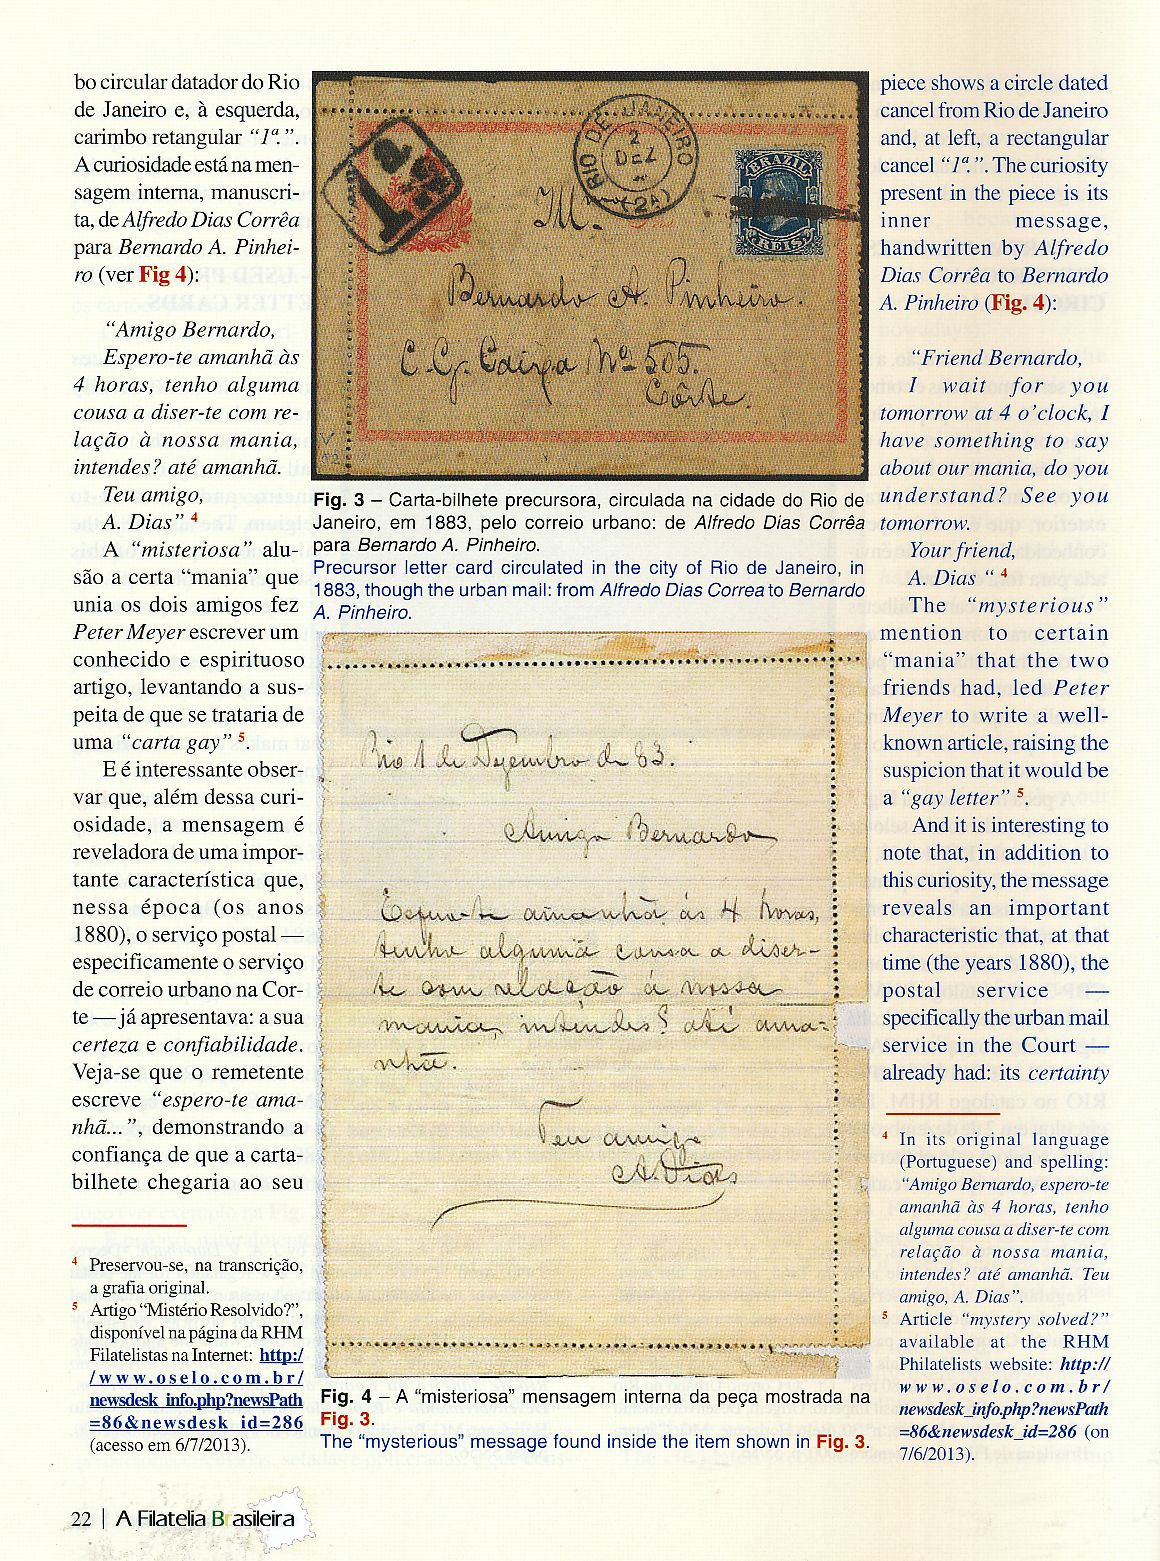 bo circular datador do Rio
de Janeiro e, à esquerda,
carimbo retangular “1ª.”.
A curiosidade está na men-
sagem interna, manuscri-
ta, de Alfredo Dias Corrêa
para Bernardo A. Pinhei-
ro (ver Fig 4):
“Amigo Bernardo,
Espero-te amanhã às
4 horas, tenho alguma
cousa a diser-te com re-
lação à nossa mania,
intendes? até amanhã.
Teu amigo,
A. Dias” 4
A “misteriosa” alu-
são a certa “mania” que
unia os dois amigos fez
Peter Meyer escrever um
conhecido e espirituoso
artigo, levantando a sus-
peita de que se trataria de
uma “carta gay” 5.
E é interessante obser-
var que, além dessa curi-
osidade, a mensagem é
reveladora de uma impor-
tante característica que,
nessa época (os anos
1880), o serviço postal —
especificamente o serviço
de correio urbano na Cor-
te — já apresentava: a sua
certeza e confiabilidade.
Veja-se que o remetente
escreve “espero-te ama-
nhã...”, demonstrando a
confiança de que a carta-
bilhete chegaria ao seu
4 Preservou-se, na transcrição,
a grafia original.
5 Artigo “Mistério Resolvido?”,
disponível na página da RHM
Filatelistas na Internet: http:/
/www.oselo.com.br/
newsdesk_info.php?newsPath
=86&newsdesk_id=286
(acesso em 6/7/2013).
1ª
RIO DE JANEIRO
2
DEZ
(2A)
BRAZIL
REIS
M.
Bernardo A. Pinheiro.
C. G. Caixa Nº 505.
Côrte.
Fig. 3 – Carta-bilhete precursora, circulada na cidade do Rio de
Janeiro, em 1883, pelo correio urbano: de Alfredo Dias Corrêa
para Bernardo A. Pinheiro.
Precursor letter card circulated in the city of Rio de Janeiro, in
1883, though the urban mail: from Alfredo Dias Correa to Bernardo
A. Pinheiro.
Rio 1 de Dezembro de 83.
Amigo Bernardo
Espero-te amanhã ás 4 horas,
tenho alguma cousa a diser-
te com relação á nossa
mania, intendes? até ama-
nhã.
Teu amigo
A. Dias
Fig. 4 – A “misteriosa” mensagem interna da peça mostrada na
Fig. 3.
The “mysterious” message found inside the item shown in Fig. 3.
piece shows a circle dated
cancel from Rio de Janeiro
and, at left, a rectangular
cancel “1ª.”. The curiosity
present in the piece is its
inner message,
handwritten by Alfredo
Dias Corrêa to Bernardo
A. Pinheiro (Fig. 4):
“Friend Bernardo,
I wait for you
tomorrow at 4 o’clock, I
have something to say
about our mania, do you
understand? See you
tomorrow.
Your friend,
A. Dias “ 4
The “mysterious”
mention to certain
“mania” that the two
friends had, led Peter
Meyer to write a well-
known article, raising the
suspicion that it would be
a “gay letter” 5.
And it is interesting to
note that, in addition to
this curiosity, the message
reveals an important
characteristic that, at that
time (the years 1880), the
postal service —
specifically the urban mail
service in the Court —
already had: its certainty
4 In its original language
(Portuguese) and spelling:
“Amigo Bernardo, espero-te
amanhã às 4 horas, tenho
alguma cousa a diser-te com
relação à nossa mania,
intendes? até amanhã. Teu
amigo, A. Dias”.
5 Article “mystery solved?”
available at the RHM
Philatelists website: http://
www.oselo.com.br/
newsdesk_info.php?newsPath
=86&newsdesk_id=286 (on
7/6/2013).
22 | A Filatelia Brasileira